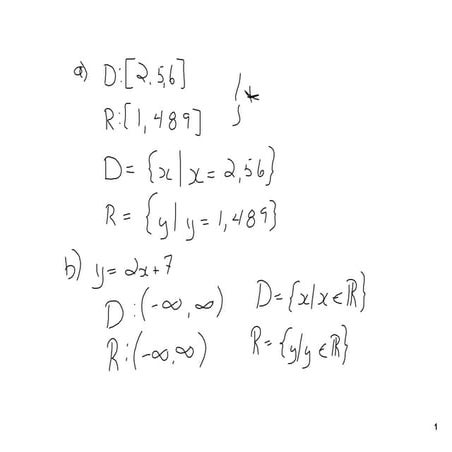 a) D:[2,5,6]
R:[1,4,8,9] *
D={x|x=2,5,6}
R={y|y=1,4,8,9}
b) y=2x+7
D:(-∞,∞) D={x|x∈ℝ}
R:(-∞,∞) R={y|y∈ℝ}
1